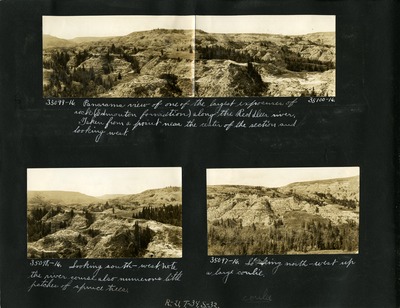 35099-16 Panorama view of one of the largest exposures of 35100-16
rock (Edmonton formation) along the Red Deer river,
Taken from a point near the center of the section and
looking west
35098-16. Looking south-west, note
the river course also numerous little
patches of spruce trees
35097-16 looking north-west up
a large coulée
coulée